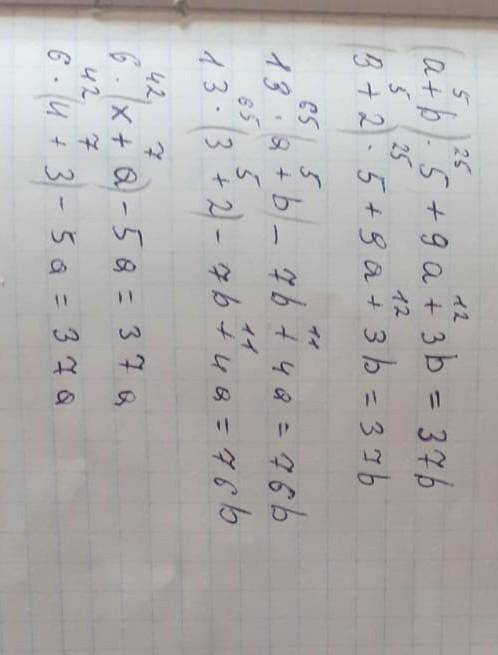 5 25 12
(a+b)·5+9a+3b=37b
5 25 12
(3+2)·5+9a+3b=37b
65 5 11
13·(a+b)-7b+4a=76b
65 5 11
13·(3+2)-7b+4a=76b
42 7
6·(x+a)-5a=37a
42 7
6·(4+3)-5a=37a